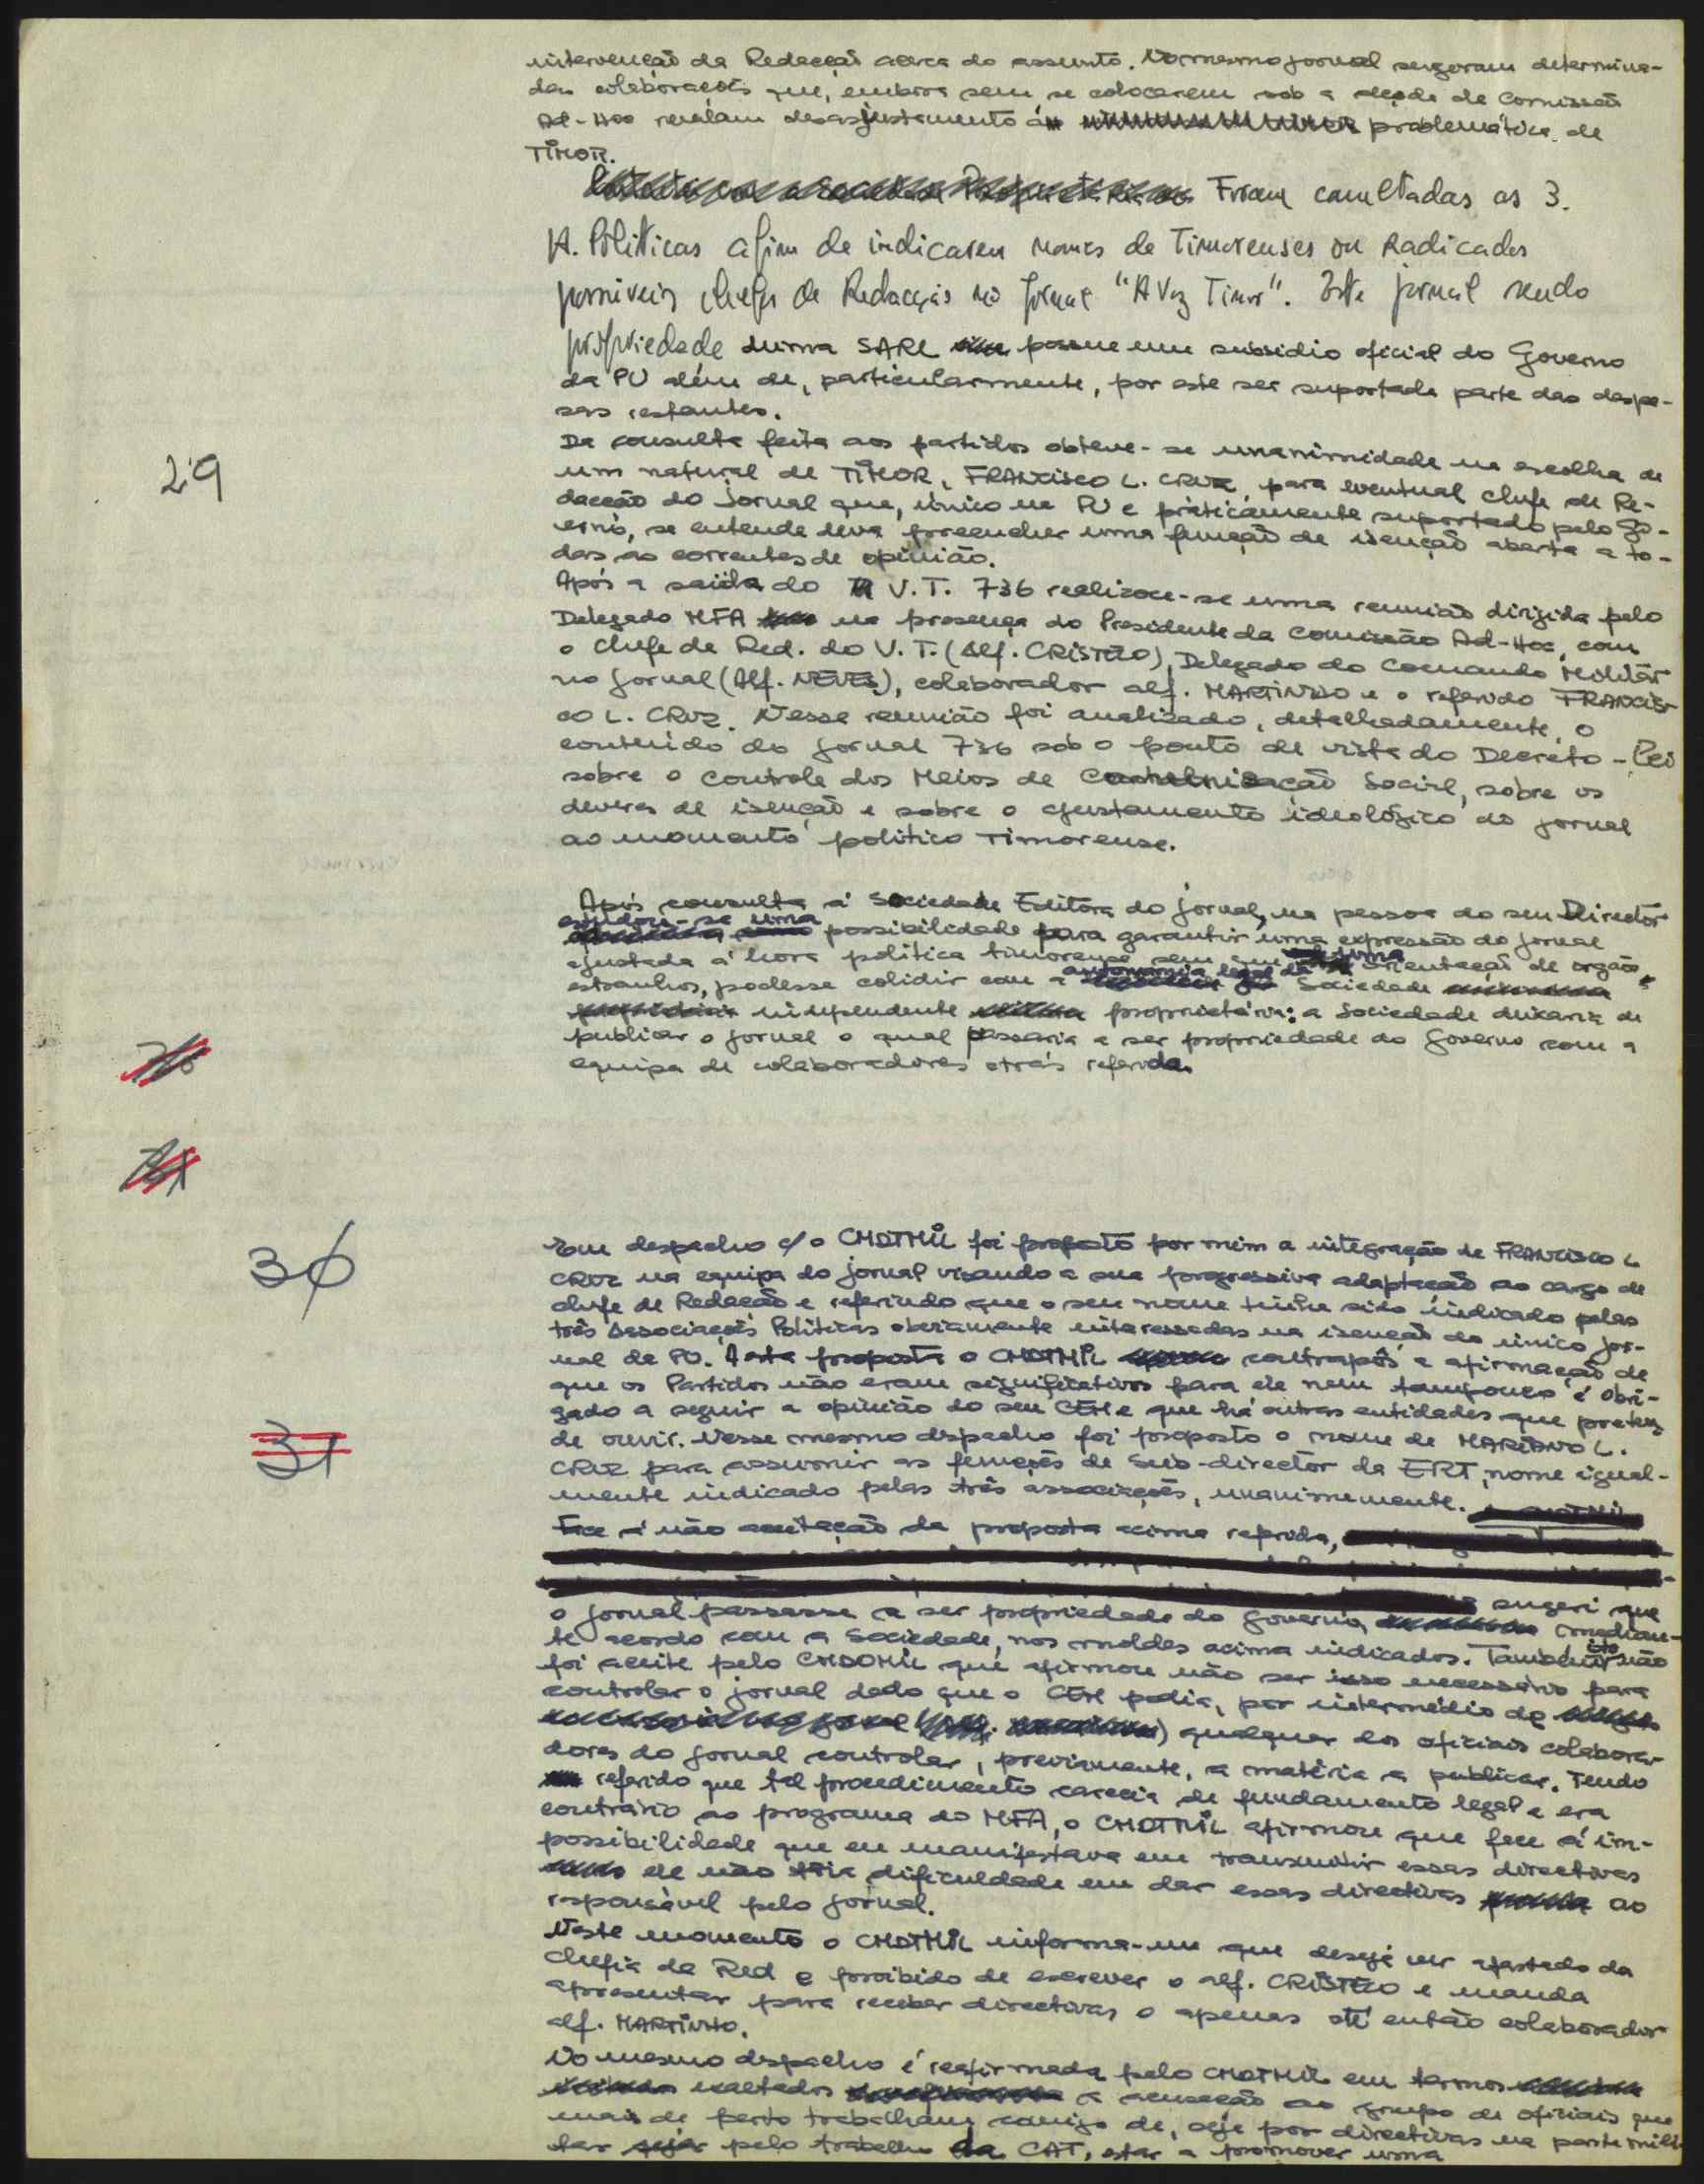 intervenção da Redacção acerca do assunto. No mesmo jornal surgeram determina-
das colaborações que, embora sem se colocarem sob a alçada de Comissão
Ad-Hoc revelam desajustamento á problemática de
TIMOR.
Foram consultadas as 3.
A. Politicas afim de indicarem nomes de Timorenses ou Radicados
possiveis chefes de Redacção no jornal "A Voz Timor". Este jornal sendo
propriedade duma SARL possue um subsidio oficial do Governo
da PU além de, particularmente, por este ser suportada parte das despe-
sas restantes.
29
Da consulta feita aos partidos obteve-se unanimidade na escolha de
um natural de TIMOR, FRANCISCO L. CRUZ para eventual chefe de Re-
dacção do Jornal que, único na PU e práticamente suportado pelo Go-
verno, se entende deva preencher uma função de isenção aberta a to-
das as correntes de opinião.
Após a saída do V.T. 736 realizou-se uma reunião dirigida pelo
Delegado MFA na presença do Presidente da Comissão Ad-Hoc, com
o Chefe de Red. do V.T. (Alf. CRISTELO), Delegado do Comando Militar
no Jornal (Alf. NEVES), colaborador alf. MARTINHO e o referido FRANCIS-
CO L. CRUZ. Nessa reunião foi analizado, detalhadamente, o
conteúdo do jornal 736 sob o ponto de vista do Decreto-Lei
sobre o controle dos Meios de Comunicação Social, sobre os
deveres de isenção e sobre o ajustamento ideológico do jornal
ao momento politico Timorense.
Após consulta á Sociedade Editora do jornal, na pessoa do seu Director
estudou-se uma possibilidade para garantir uma expressão do jornal
ajustada á hora politica timorense sem que uma orientação de orgãos
estranhos, podesse colidir com a autonomia legal da Sociedade
independente proprietária: a Sociedade deixaria de
publicar o jornal o qual passaria a ser propriedade do Governo com a
equipa de colaboradores atrás referida.
30
Em despacho c/ o CMDTMIL foi proposto por mim a integração de FRANCISCO L
CRUZ na equipa do jornal visando a sua progressiva adaptação ao cargo de
chefe de Redação e referindo que o seu nome tinha sido indicado pelas
três Associações Politicas obviamente interessadas na isenção do único jor-
nal da PU. A esta proposta o CMDTMIL contrapôs a afirmação de
que os Partidos não eram significativos para ele nem tampouco é obri-
gado a seguir a opinião do seu CEM e que há outras entidades que preten
de ouvir. Nesse mesmo despacho foi proposto o nome de MARIANO L.
31
CRUZ para assumir as funções de Sub-director da ERT, nome igual-
mente indicado pelas três associações, unanimemente.
Face á não aceitação da proposta acima referida,
sugeri que
o jornal passasse a ser propriedade do Governo, median-
te acordo com a Sociedade, nos moldes acima indicados. Também isto não
foi aceite pelo CMDOMIL que afirmou não ser isso necessário para
controlar o jornal dado que o CEM podia, por intermédio de
qualquer dos oficiais colabora-
dores do jornal controlar, previamente, a matéria a publicar. Tendo
referido que tal procedimento carecia de fundamento legal e era
contrário ao programa do MFA, o CMDTMIL afirmou que face á im-
possibilidade que eu manifestava em transmitir essas directivas
ele não teria dificuldade em dar essas directivas ao
responsável pelo jornal.
Neste momento o CMDTMIL informa-me que deseja ver afastado da
chefia da Red e proibido de escrever o alf. CRISTELO e manda
apresentar para receber directivas o apenas até então colaborador
alf. MARTINHO.
No mesmo despacho é reafirmada pelo CMDTMIL em termos
exaltados a acusação ao grupo de oficiais que
mais de perto trabalham comigo de, seja por directivas na parte mili
tar seja pelo trabalho da CAT, estar a promover uma